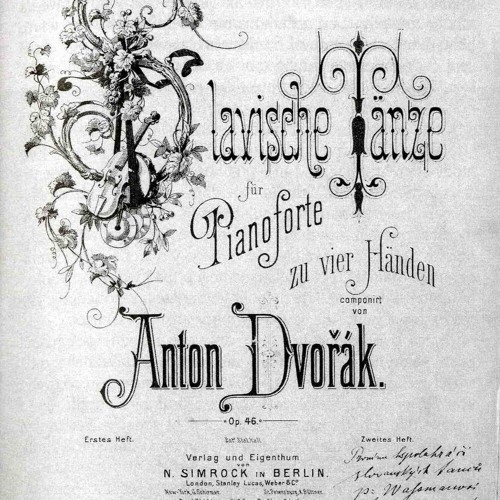 Slavische Tänze
für
Pianoforte
zu vier Händen
componirt
von
Anton Dvořák.
Op. 46.
Erstes Heft.
Zweites Heft.
Verlag und Eigenthum
von
N. SIMROCK IN BERLIN.
London, Stanley Lucas, Weber & Cº
New-York, G. Schirmer.
St. Petersburg, A. Büttner.
slovanských tanců